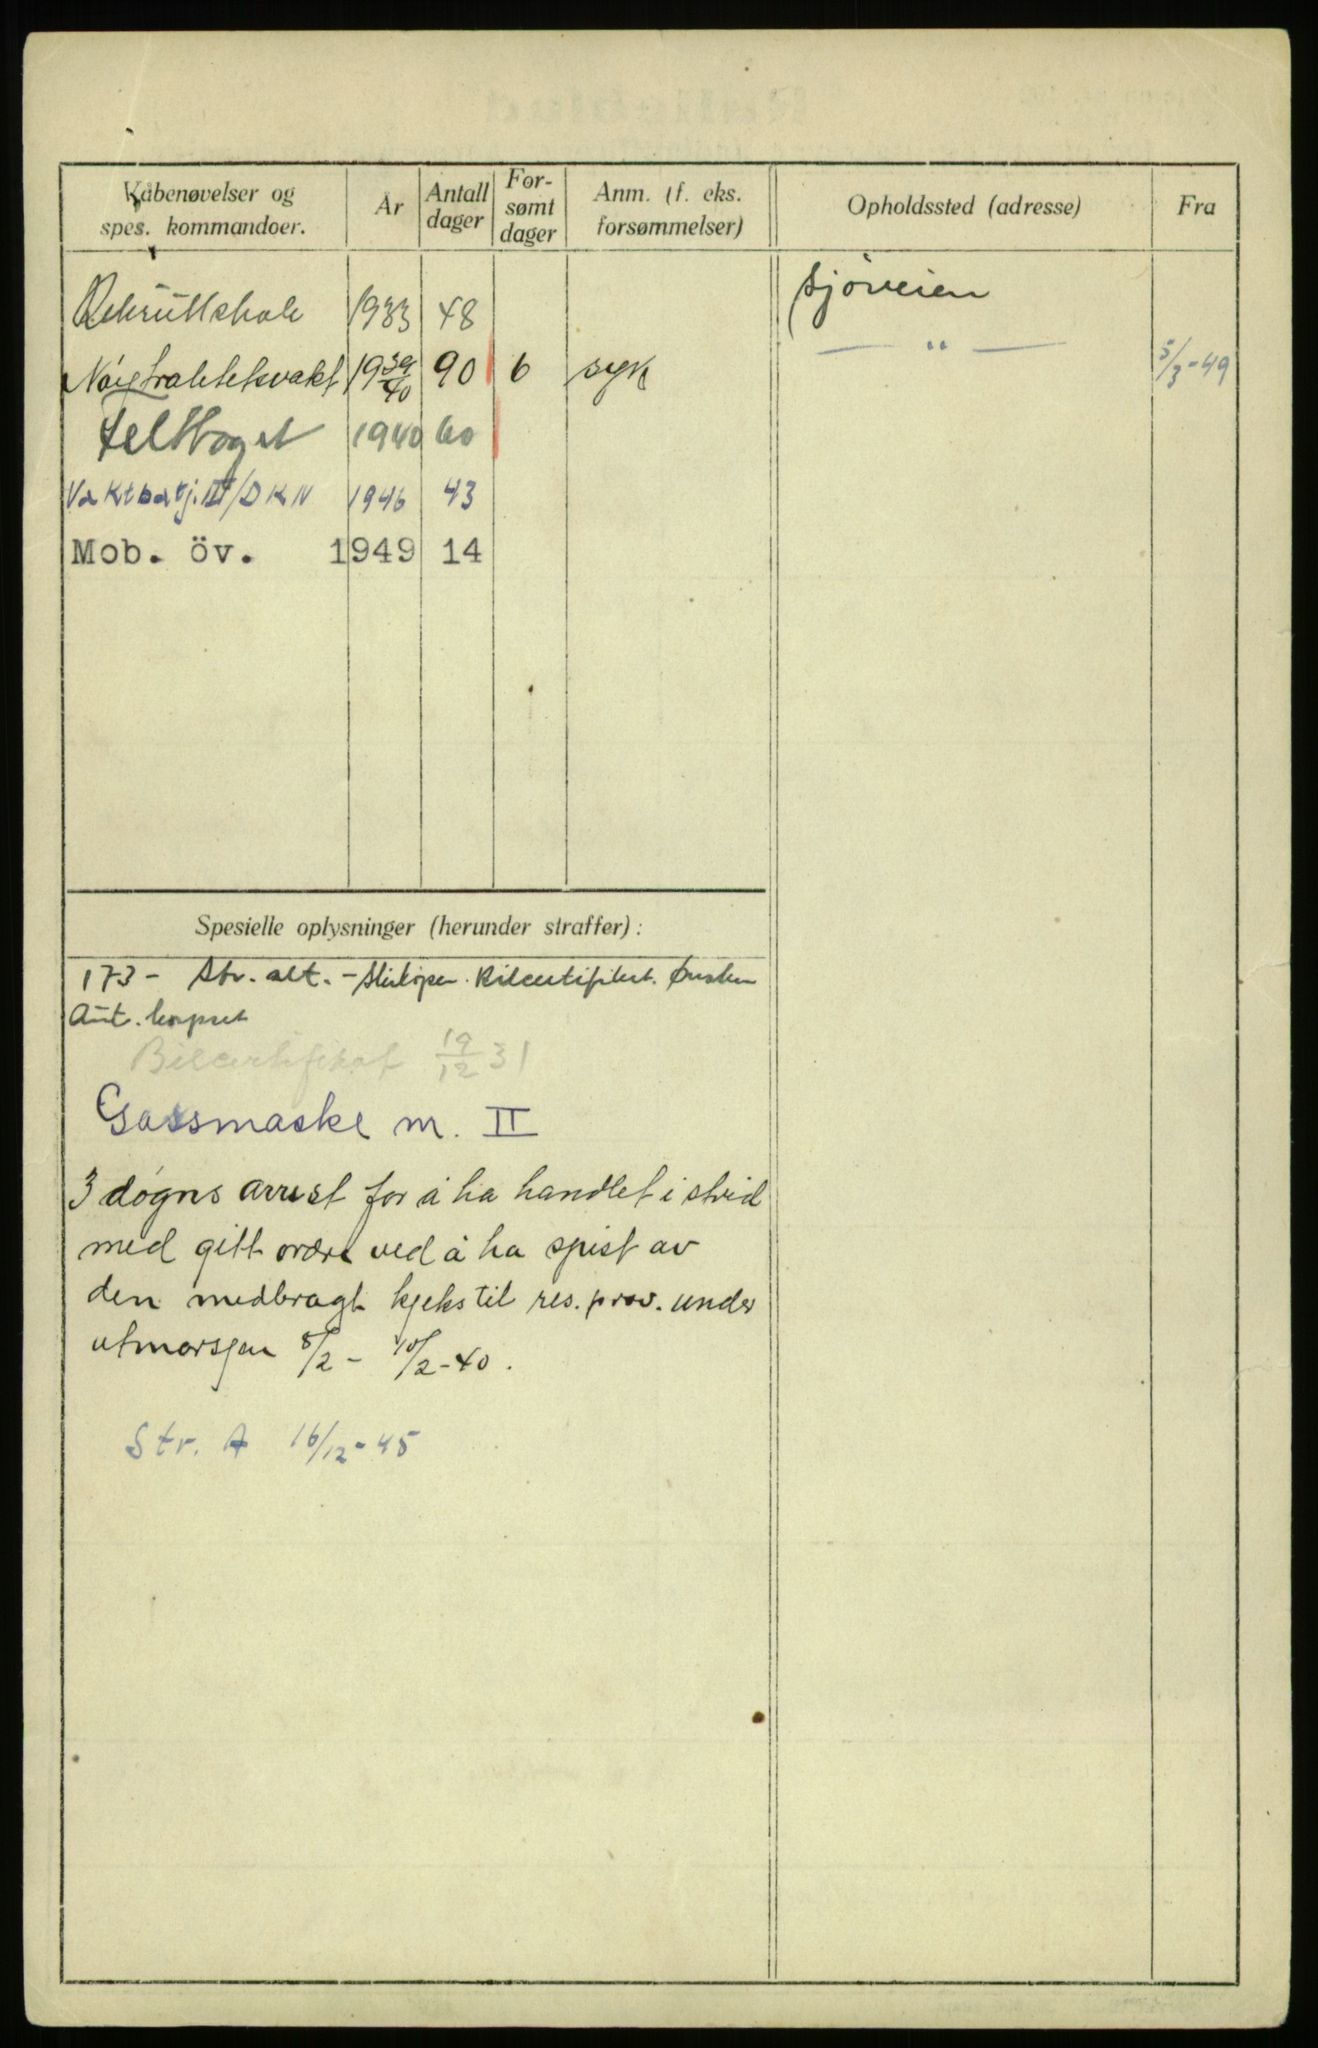 Våbenøvelser og
spes. kommandoer.
År
Antall
dager
For-
sømt
dager
Anm. (f. eks.
forsømmelser)
Opholdssted (adresse)
Fra
Rekruttskole 1933 48
Sjøveien
Nøytralitetsvakt 1939/40 90 6 syk
— " — 5/3-49
Felttoget 1940 60
Vaktbatj. III/DKN 1946 43
Mob. öv. 1949 14
Spesielle oplysninger (herunder straffer):
173 - Str. alt. - Skiløper. Bilcertifikat. Ønsker
Aut. korpset
Bilcertifikat 19/12 31
Gassmaske m. II
3 døgns arrest for å ha handlet i strid
med gitt ordre ved å ha spist av
den medbragt kjeks til res. prov. under
utmarsjen 8/2 - 10/2-40.
Str. A 16/12-45